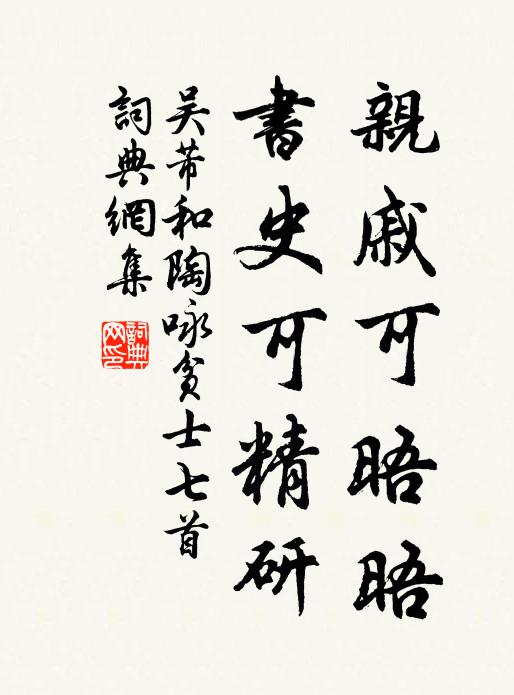 親戚可晤晤
書史可精研
吳芾和陶咏貧士七首
詞典網集
詞典網印